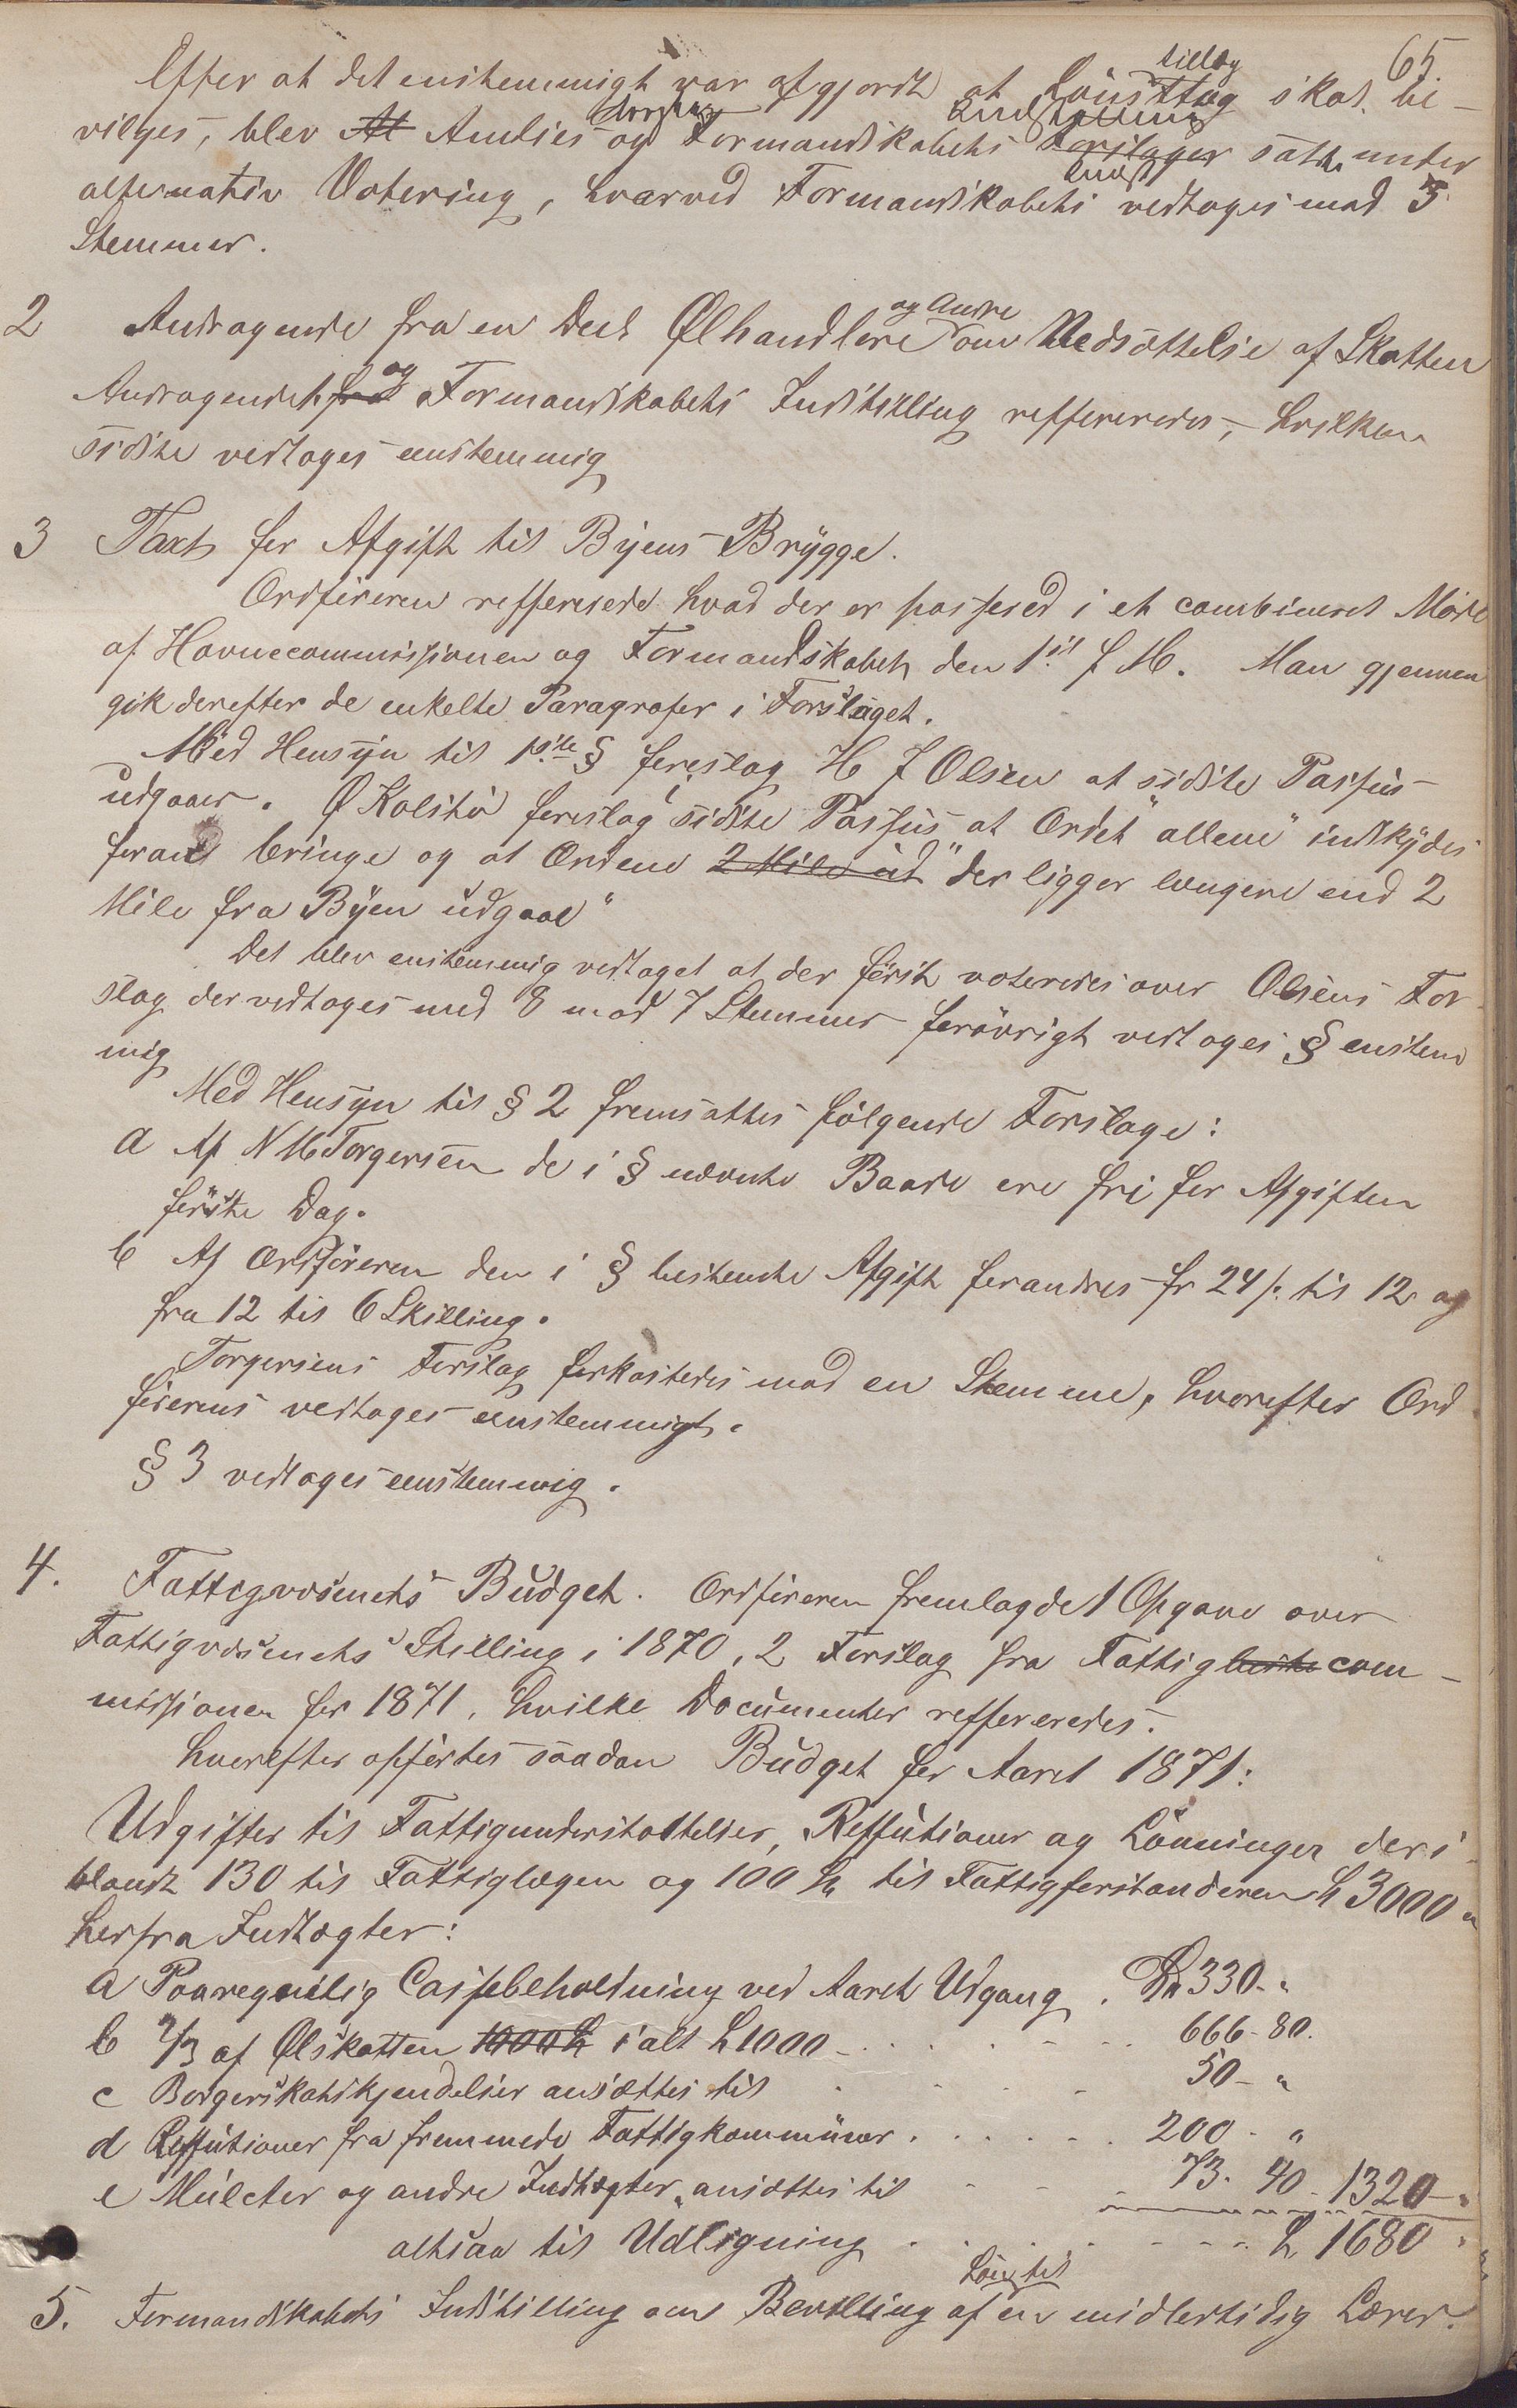 65.
Efter at det enstemmigt var afgjordt at Lönstillæg skat be-
vilges, blev At Amlies Forslag og Formandskabets Forslager Indstilling satte under
alternativ Votering, hvorved Formandskabets Indst vedtoges mod 3
Stemmer.
2 Andragende fra en Deel Ølhandlere og Andre om Nedsættelse af Skatten
Andragendet fra og Formandskabets Indstilling reffereredes, hvilken
sidste vedtoges eenstemmig
3 Taxt for Afgift til Byens Brygge.
Ordføreren reffererede hvad der er passered i et combineret Møde
af Havnecommissionen og Formandskabet den 1ste f M. Man gjennem
gik derefter de enkelte Paragrafer i Forslaget.
Med Hensyn til 1ste § foreslog H J Olsen at sidste Passus
udgaaer. Ø Kolstø foreslog sidste Passus at Ordet "allene" indskydes
foran bringe og at Ordene 2 Mile ud "der ligger længere end 2
Mile fra Byen udgaae"
Det blev enstemmig vedtaget at der først voteredes over Olsens For
slag der vedtoges med 8 mod 7 Stemmer forøvrigt vedtoges § enstem
mig
Med Hensyn til § 2 fremsattes følgende Forslage:
a Af N M Torgersen de i § nævnte Baade ere fri for Afgiften
første Dag.
b Af Ordføreren den i § bestemte Afgift forandres fr 24 s. til 12 og
fra 12 til 6 Skilling.
Torgersens Forslag forkastedes mod en Stemme, hvorefter Ord
førerens vedtoges eenstemmigt.
§ 3 vedtoges eenstemmig.
4. Fattigvæsenets Budget. Ordføreren fremlagde 1 Opgave over
Fattigvæsenets Stilling i 1870, 2 Forslag fra Fattigbesty com-
missionen for 1871, hvilke Documenter reffereredes.
hvorefter opførtes saadan Budget for Aaret 1871:
Udgifter til Fattigunderstøttelser, Reffutioner og Lønninger deri-
blandt 130 til Fattiglægen og 100 Spd til Fattigforstanderen Spd 3000 "
herfra Indtægter:
a Paaregnelig Cassebeholdning ved Aarets Udgang . Spd 330 - "
b 2/3 af Ølskatten 1000 Spd i alt Spd 1000 - . . . . 666 - 80.
c Borgerskabskjendelser ansættes til . . . . 50 - "
d Reffutioner fra fremmede Fattigkommuner . . . . . 200 - "
e Mulcter og andre Indtægter, ansættes til - - - 73. 40 - 1320 - "
altsaa til Udligning . . . . . . Spd 1680 "
5. Formandskabets Indstilling om Bevilling af Løn til en midlertidig Lærer.